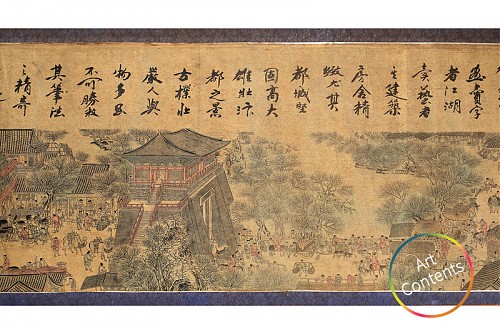 畫賣字
者江湖
賣藝者
之建築
房舍精
緻尤其
都城堅
固高大
雄壯汴
都之景
古樸壯
嚴人與
物多至
不可勝數
其筆法
之精奇
Art
Contents